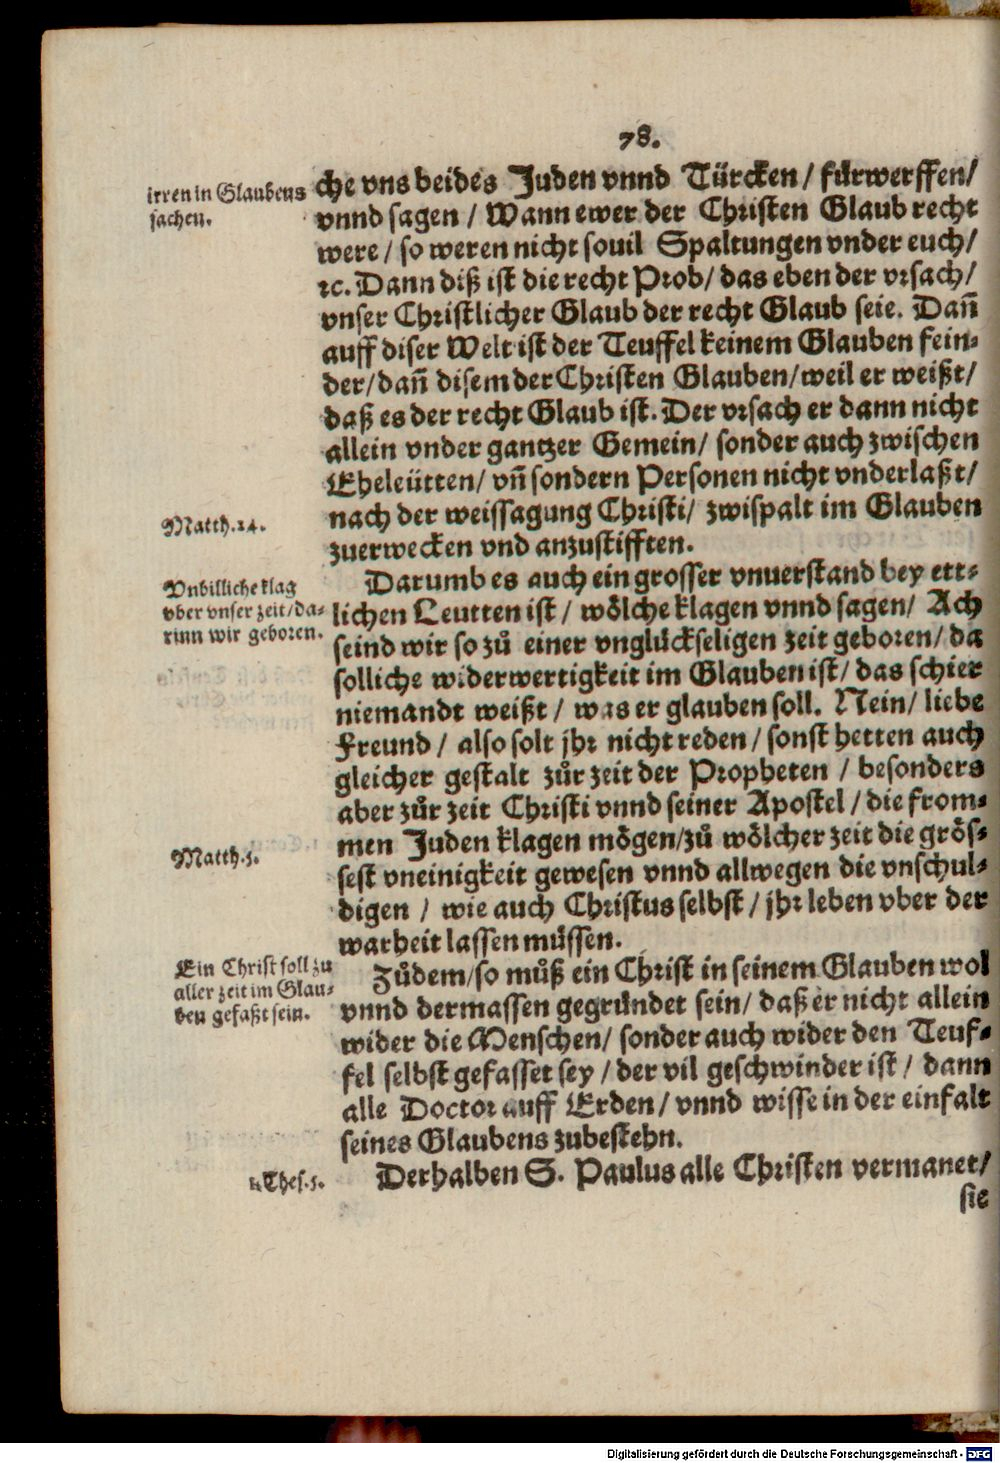 78.
irren in Glaubens
sachen.
che vns beides Juden vnnd Türcken / fürwerffen /
vnnd sagen / Wann ewer der Christen Glaub recht
were / so weren nicht souil Spaltungen vnder euch /
ꝛc. Dann diß ist die recht Prob / das eben der vrsach /
vnser Christlicher Glaub der recht Glaub seie. Dañ
auff diser Welt ist der Teuffel keinem Glauben fein⸗
der / dañ disem der Christen Glauben / weil er weißt /
daß es der recht Glaub ist. Der vrsach er dann nicht
allein vnder gantzer Gemein / sonder auch zwischen
Eheleütten / vñ sondern Personen nicht vnderlaßt /
Matth.24.
nach der weissagung Christi / zwispalt im Glauben
zuerwecken vnd anzustifften.
Vnbilliche klag
vber vnser zeit / da⸗
rinn wir geboren.
Darumb es auch ein grosser vnuerstand bey ett⸗
lichen Leutten ist / wölche klagen vnnd sagen / Ach
seind wir so zů einer vnglückseligen zeit geboren / da
solliche widerwertigkeit im Glauben ist / das schier
niemandt weißt / was er glauben soll. Nein / liebe
Freund / also solt jhr nicht reden / sonst hetten auch
gleicher gestalt zůr zeit der Propheten / besonders
aber zůr zeit Christi vnnd seiner Apostel / die from⸗
Matth.5.
men Juden klagen mögen / zů wölcher zeit die grös⸗
sest vneinigkeit gewesen vnnd allwegen die vnschul⸗
digen / wie auch Christus selbst / jhr leben vber der
warheit lassen müssen.
Ein Christ soll zu
aller zeit im Glau⸗
ben gefaßt sein.
Zůdem / so můß ein Christ in seinem Glauben wol
vnnd dermassen gegründet sein / daß er nicht allein
wider die Menschen / sonder auch wider den Teuf⸗
fel selbst gefasset sey / der vil geschwinder ist / dann
alle Doctor auff Erden / vnnd wisse in der einfalt
seines Glaubens zubestehn.
Thes.5.
Derhalben S. Paulus alle Christen vermanet /
sie
Digitalisierung gefördert durch die Deutsche Forschungsgemeinschaft - DFG